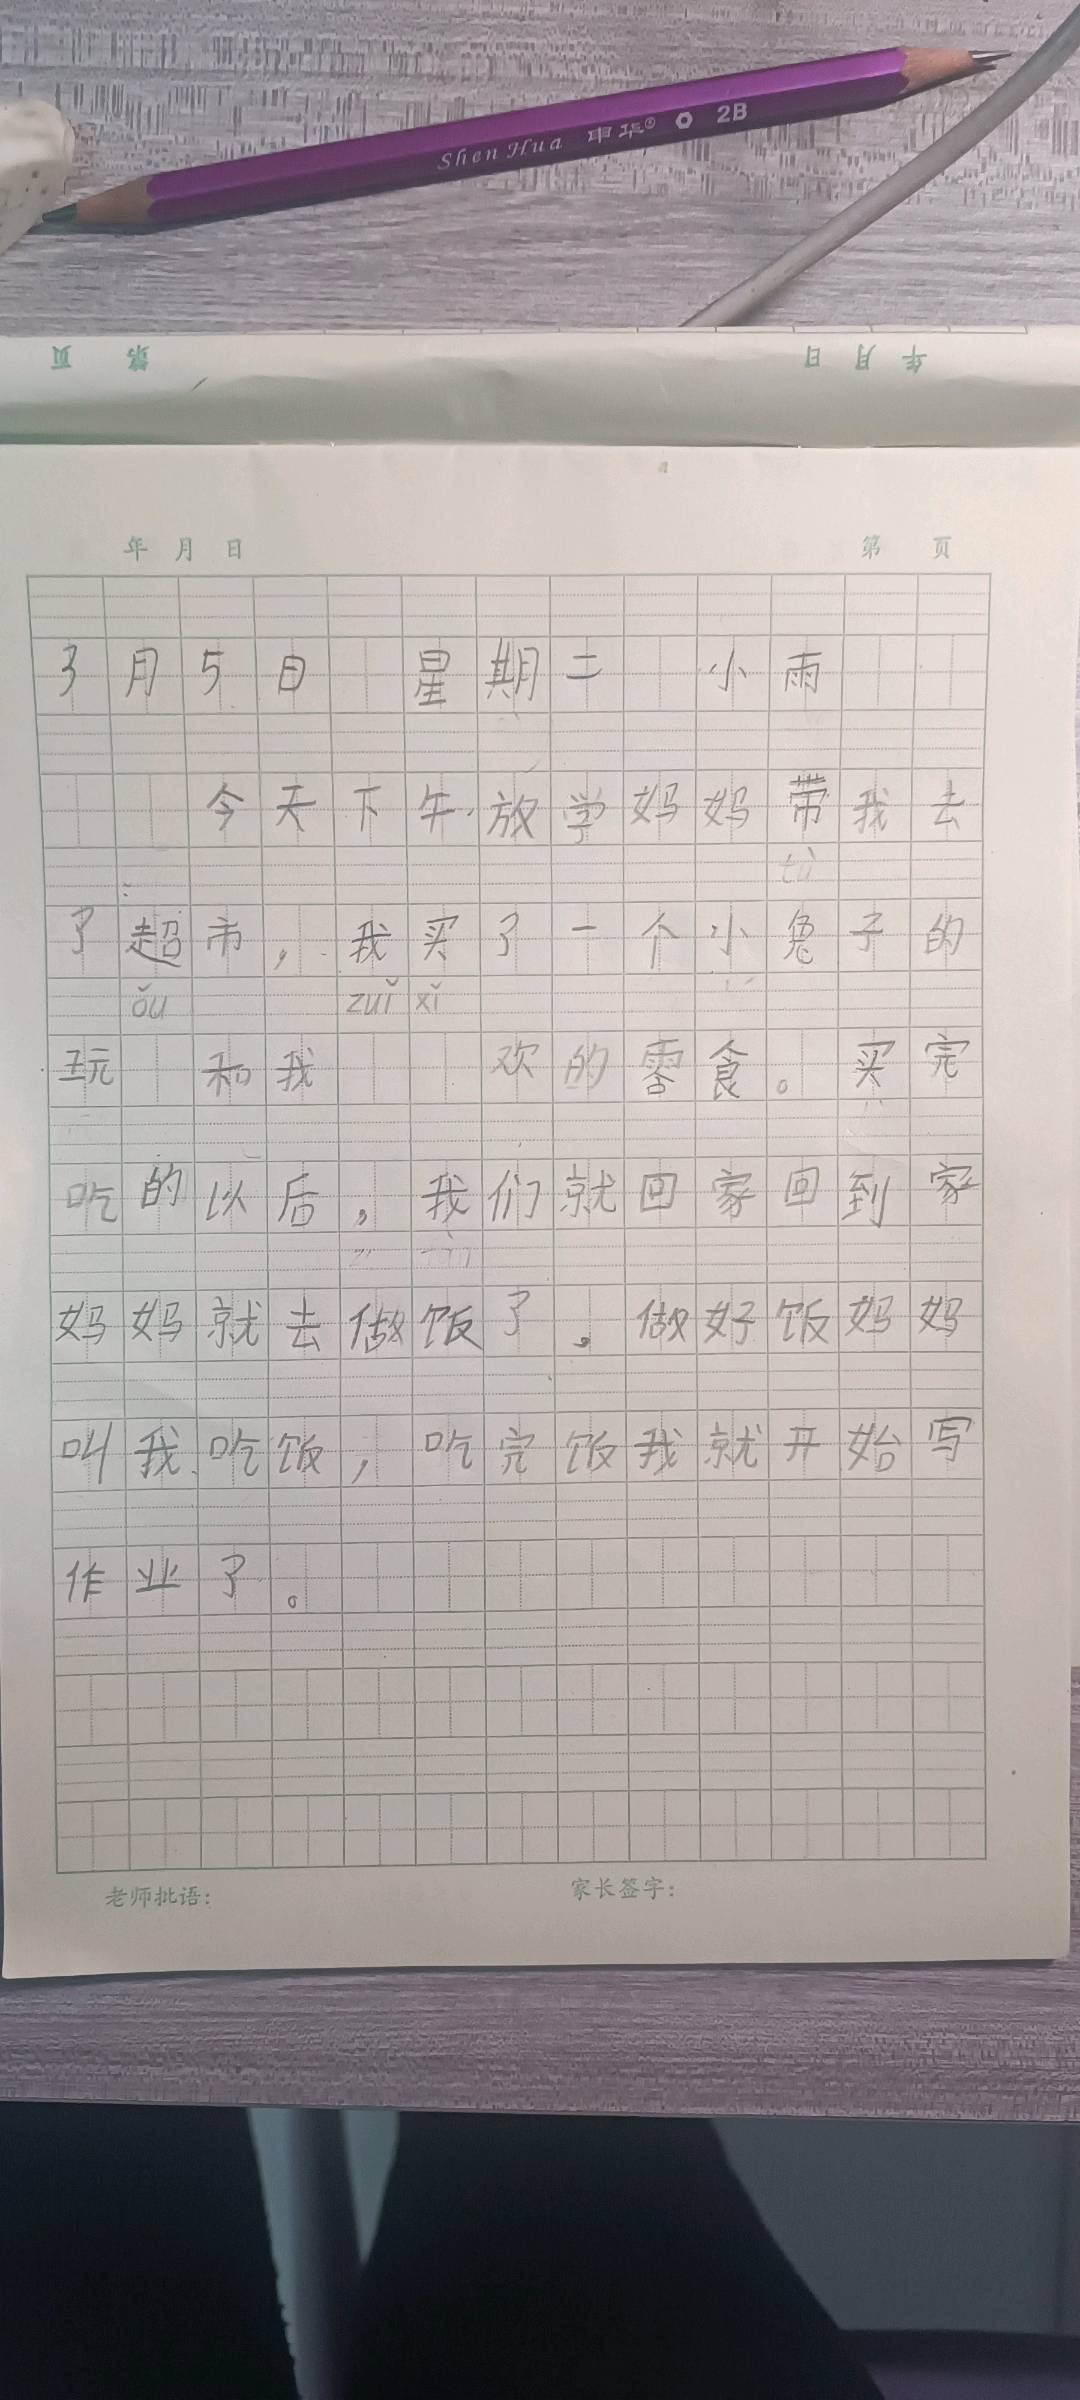 Shen Hua 申华® 2B
年 月 日 第 页
年 月 日 第 页
3月5日 星期二 小雨
今天下午放学妈妈带我去
tù
了超市，我买了一个小兔子的
ǒu zuǐ xǐ
玩 和我 欢的零食。买完
吃的以后，我们就回家回到家
妈妈就去做饭了。做好饭妈妈
叫我吃饭，吃完饭我就开始写
作业了。
老师批语： 家长签字：